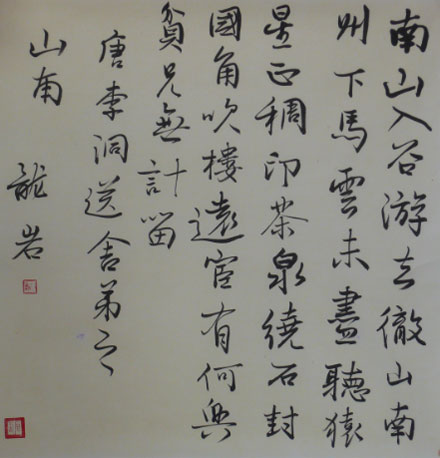 南山入谷游去徹山南
州下馬雲未盡聽猿
星正稠印茶泉繞石封
國角吹樓遠宦有何興
貧兄無計留
唐李洞送舍弟之
山南 龍岩